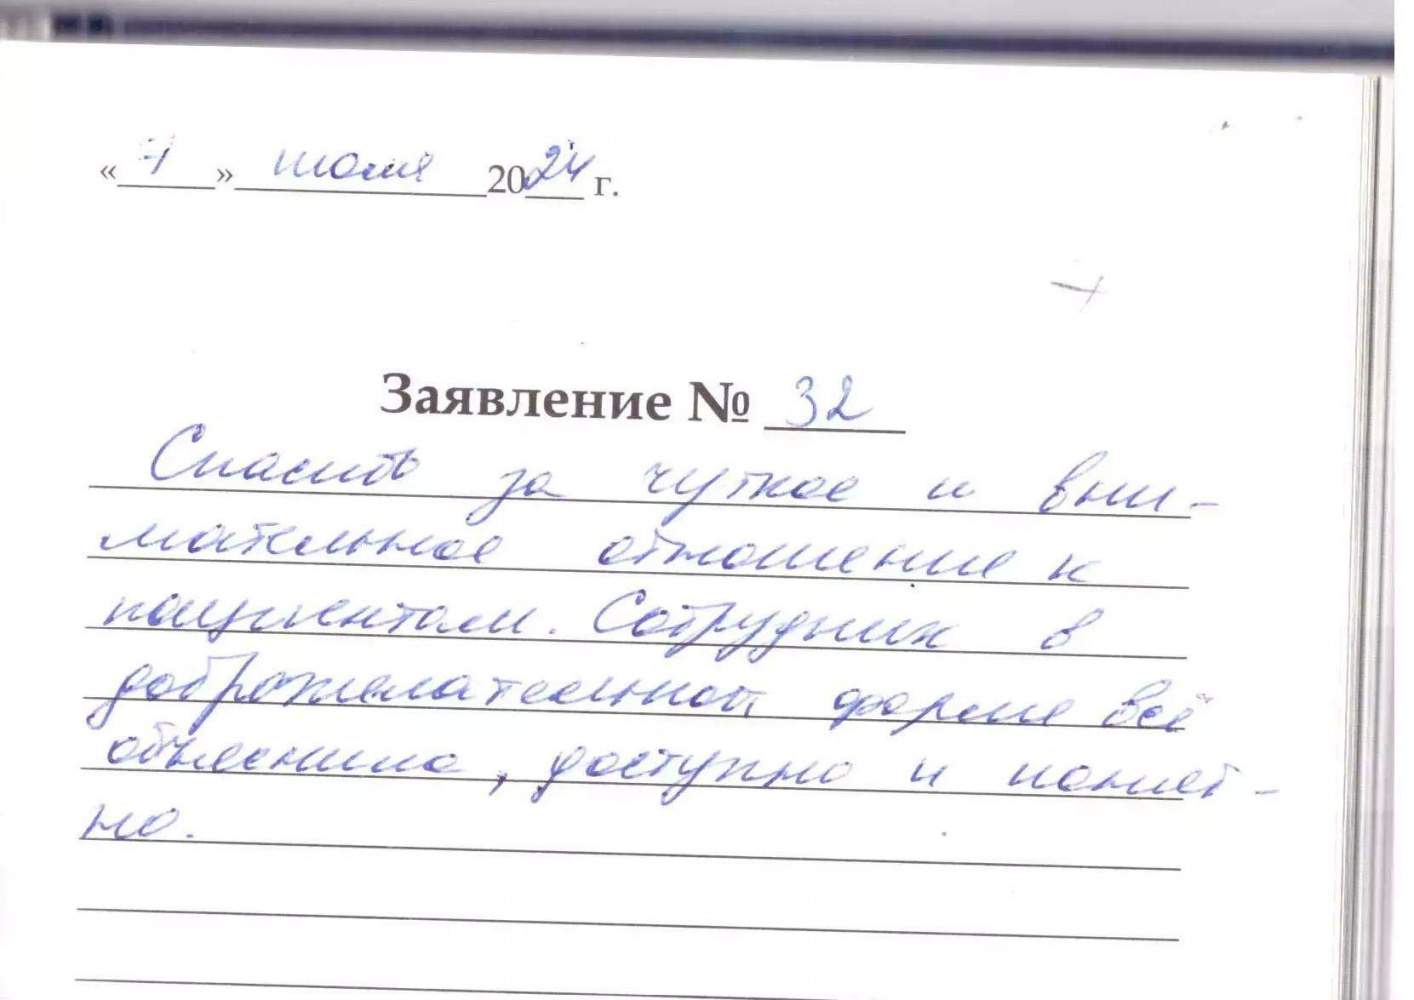 « 7 » июля 2024 г.
Заявление № 32
Спасибо за чуткое и вни-
мательное отношение к
пациентам. Сотрудник в
доброжелательной форме всё
объяснила, доступно и понят-
но.